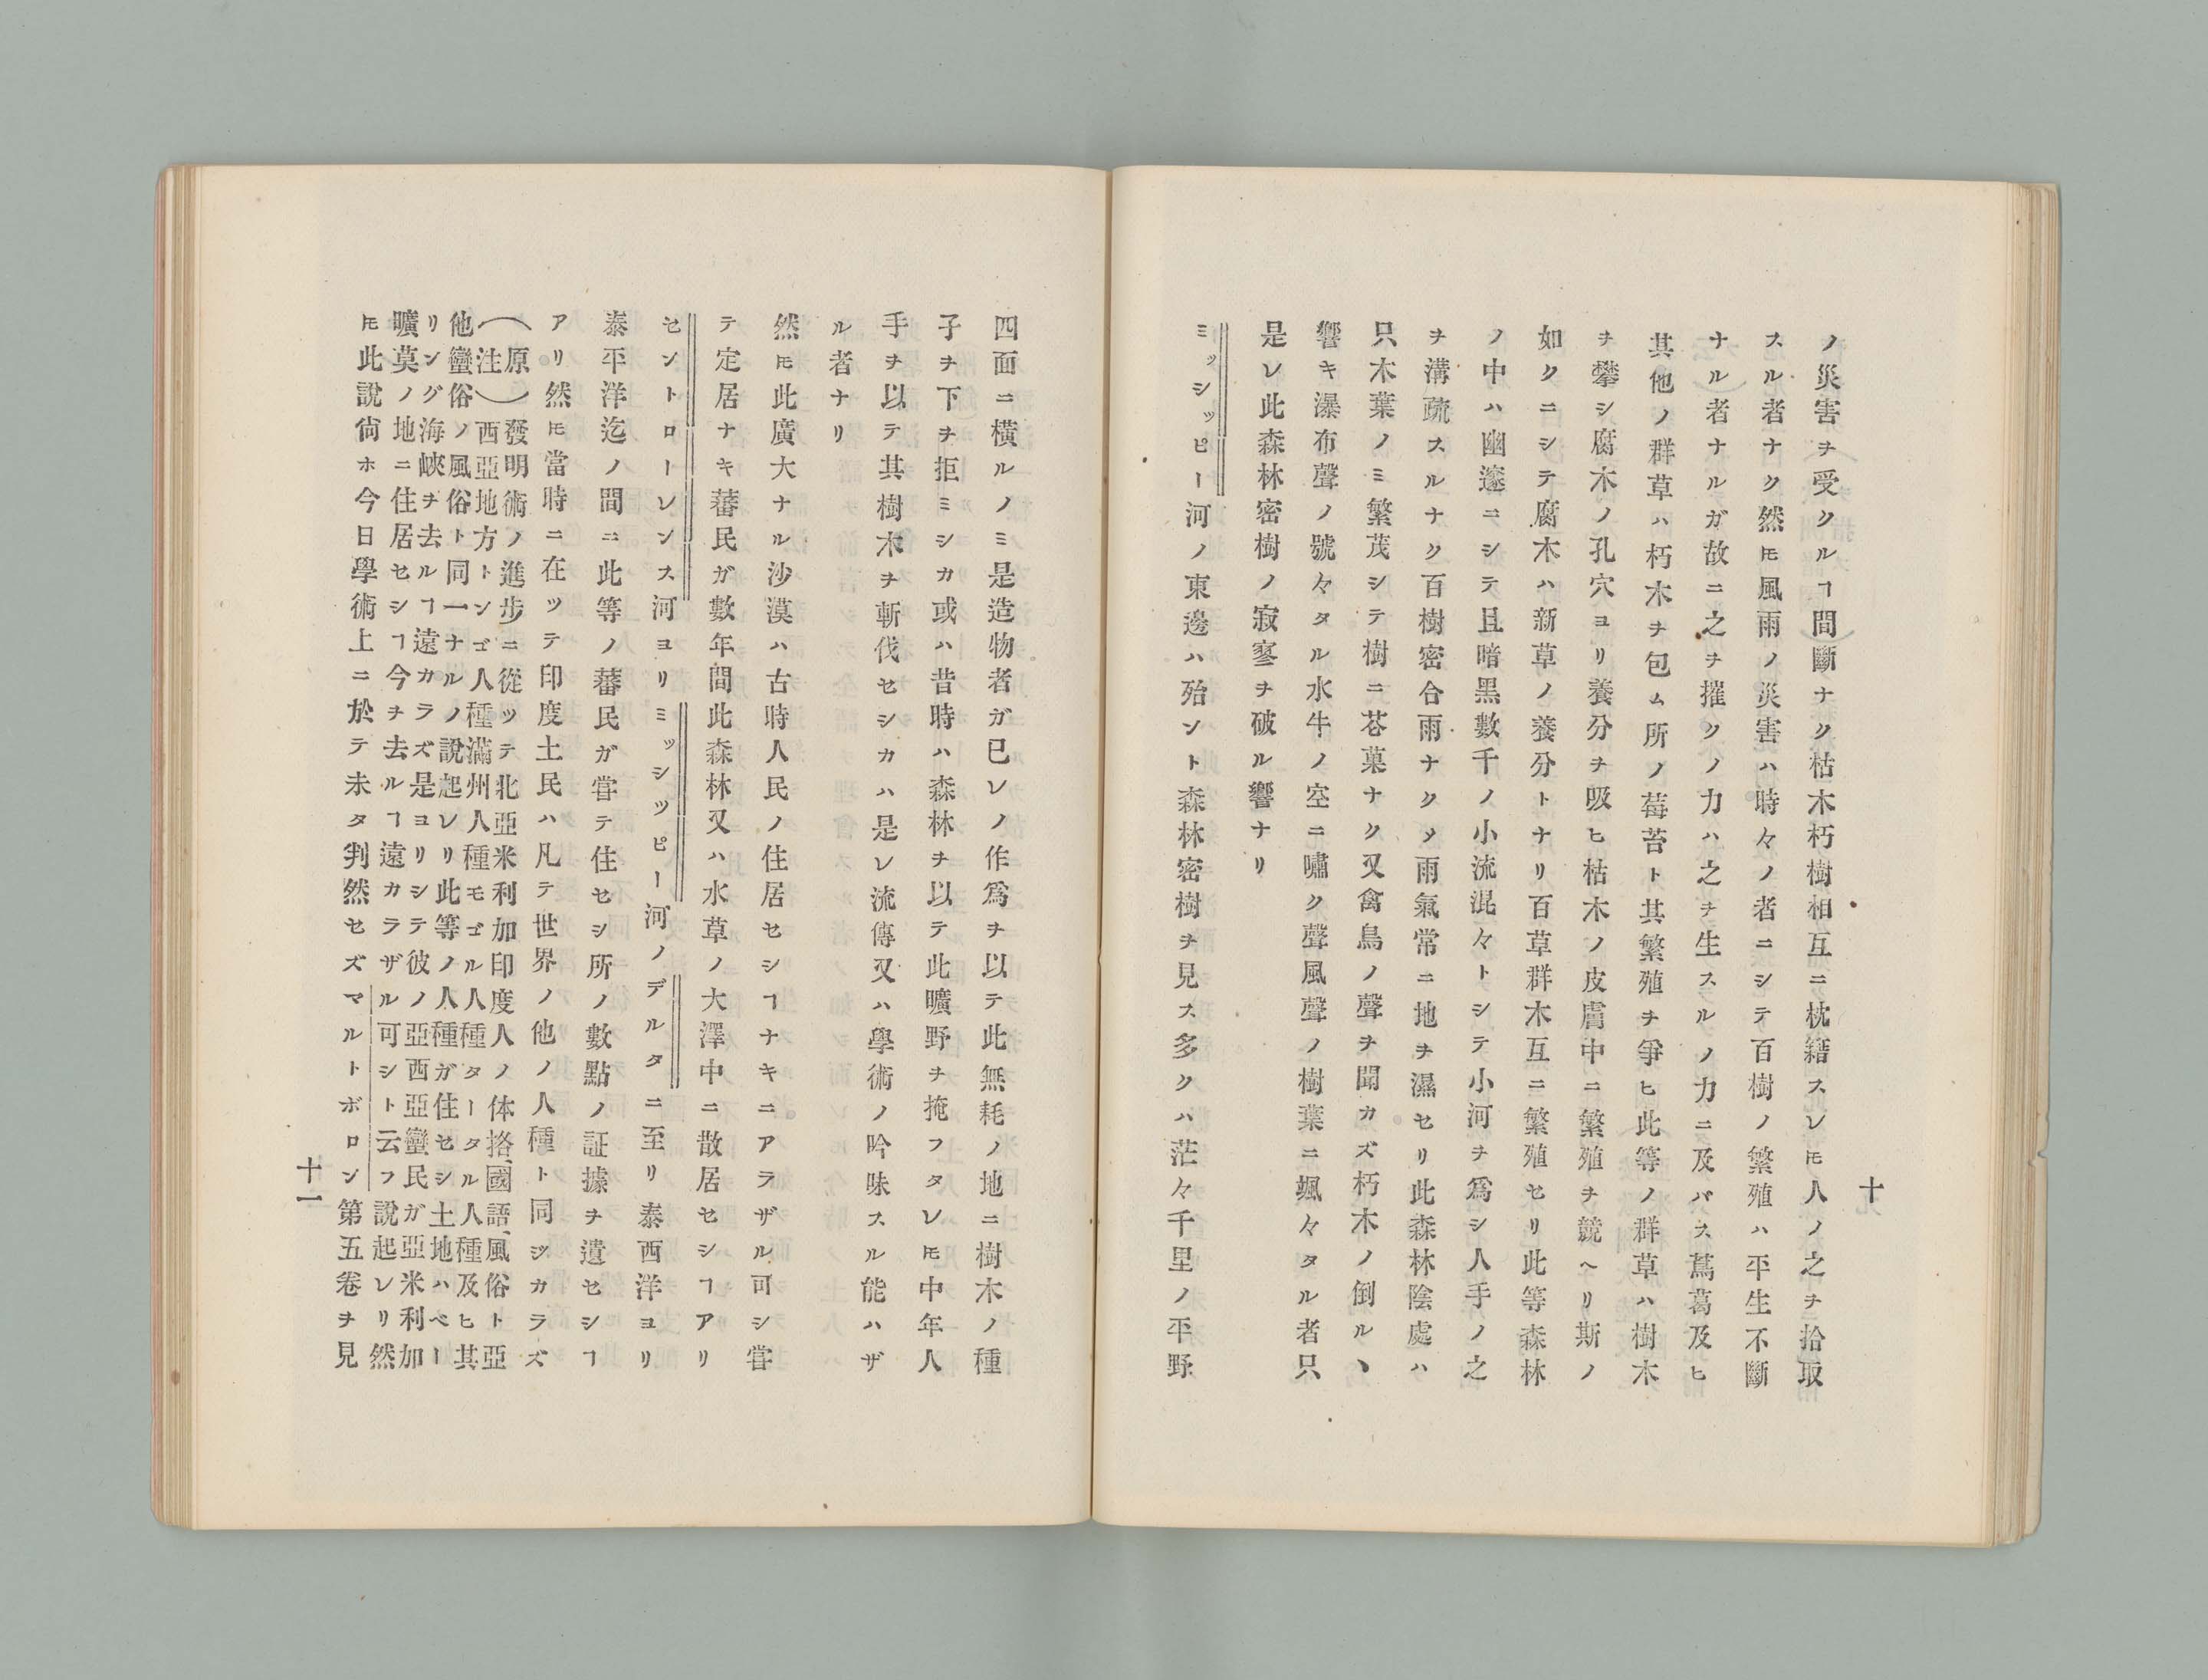 十
ノ災害ヲ受クルヿ間斷ナク枯木朽樹相互ニ枕籍スレ𪜈人ノ之ヲ拾取
スル者ナク然𪜈風雨ノ災害ハ時々ノ者ニシテ百樹ノ繁殖ハ平生不斷
ナル者ナルガ故ニ之ヲ摧クノ力ハ之ヲ生スルノ力ニ及バス蔦葛及ヒ
其他ノ群草ハ朽木ヲ包ム所ノ莓苔ト其繁殖ヲ爭ヒ此等ノ群草ハ樹木
ヲ攀シ腐木ノ孔穴ヨリ養分ヲ吸ヒ枯木ノ皮膚中ニ繁殖ヲ競ヘリ斯ノ
如クニシテ腐木ハ新草ノ養分トナリ百草群木互ニ繁殖セリ此等森林
ノ中ハ幽邃ニシテ且暗黑數千ノ小流混々トシテ小河ヲ爲シ人手ノ之
ヲ溝疏スルナク百樹密合雨ナクメ雨氣常ニ地ヲ濕セリ此森林陰處ハ
只木葉ノミ繁茂シテ樹ニ花菓ナク又禽鳥ノ聲ヲ聞カズ朽木ノ倒ルヽ
響キ瀑布聲ノ號々タル水牛ノ空ニ嘯ク聲風聲ノ樹葉ニ颯々タル者只
是レ此森林密樹ノ寂寥ヲ破ル響ナリ
ミッシッピー河ノ東邊ハ殆ント森林密樹ヲ見ス多クハ茫々千里ノ平野
四面ニ横ルノミ是造物者ガ已レノ作爲ヲ以テ此無耗ノ地ニ樹木ノ種
子ヲ下ヲ拒ミシカ或ハ昔時ハ森林ヲ以テ此曠野ヲ掩フタレ𪜈中年人
手ヲ以テ其樹木ヲ斬伐セシカハ是レ流傳又ハ學術ノ吟味スル能ハザ
ル者ナリ
然𪜈此廣大ナル沙漠ハ古時人民ノ住居セシヿナキニアラザル可シ甞
テ定居ナキ蕃民ガ數年間此森林又ハ水草ノ大澤中ニ散居セシヿアリ
セントローレンス河ヨリミッシッピー河ノデルタニ至リ泰西洋ヨリ
泰平洋迄ノ間ニ此等ノ蕃民ガ甞テ住セシ所ノ數點ノ証據ヲ遺セシヿ
アリ然𪜈當時ニ在ッテ印度土民ハ凡テ世界ノ他ノ人種ト同シカラズ
（原注）發明術ノ進步ニ從ッテ北亞米利加印度人ノ体挌國語風俗ト亞
西亞地方トンゴ人種滿州人種モゴル人種タータル人種及ヒ其
他蠻俗ノ風俗ト同一ナルノ說起レリ此等ノ人種ガ住セシ土地ハベー
リング海峽ヲ去ルヿ遠カラズ是ヨリシテ彼ノ亞西亞蠻民ガ亞米利加
曠莫ノ地ニ住居セシヿ今ヲ去ルヿ遠カラザル可シト云フ說起レリ然
𪜈此說尙ホ今日學術上ニ於テ未タ判然セズマルトボロン第五卷ヲ見
十一